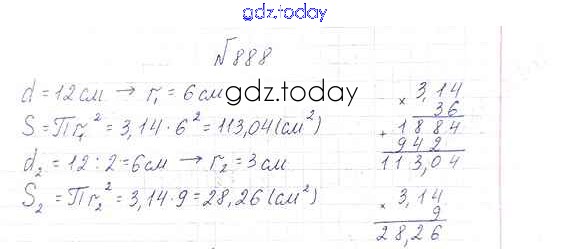 gdz.today
№888
d = 12 см → r₁ = 6 см
gdz.today
S = Пr₁² = 3,14 · 6² = 113,04 (см²)
d₂ = 12 : 2 = 6 см → r₂ = 3 см
S₂ = Пr₂² = 3,14 · 9 = 28,26 (см²)
× 3,14
36
+ 1884
942
113,04
× 3,14
9
28,26